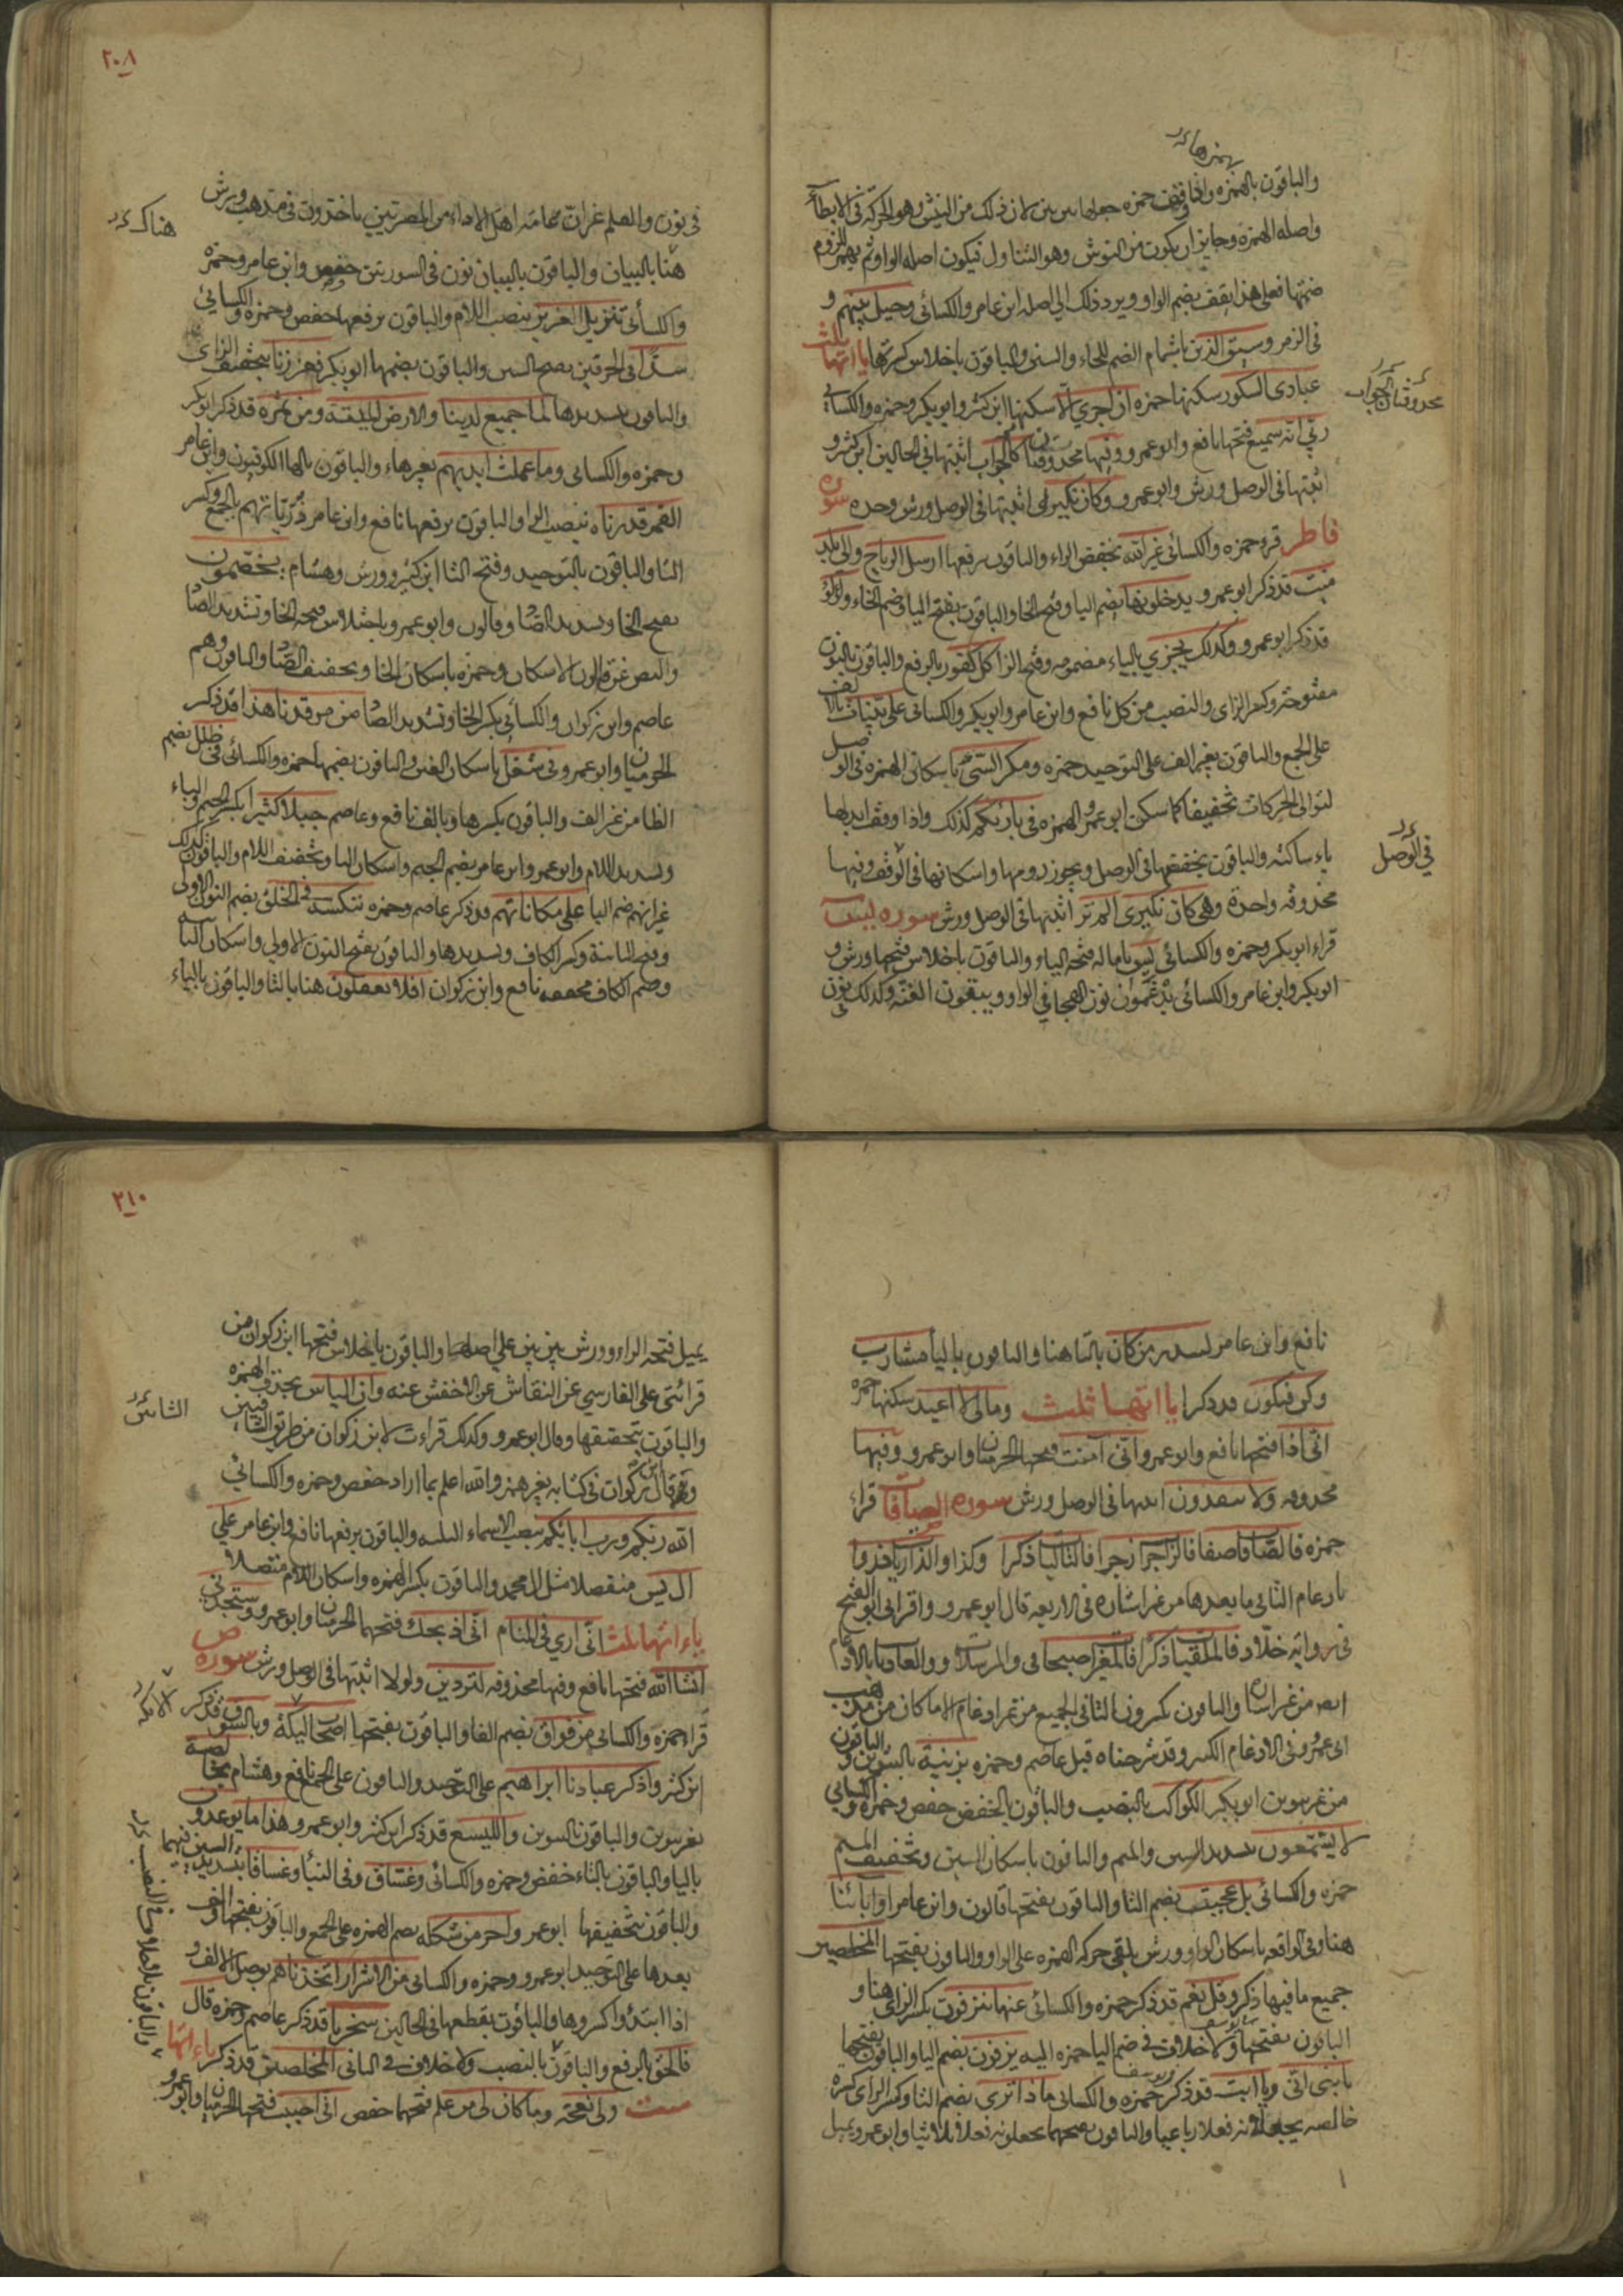 بهمزها
والباقون بالهمزه واذا وقف حمزه جعلها بين بين لان ذلك من النئيش وهو الحركة في الابطآء
واصله الهمزه وجايز ان يكون من النوش وهو التناول فيكون اصله الواو ثم يهمز للزوم
ضمتها فعلى هذا يقف بضم الواو ويرد ذلك الي اصله ابن عامر والكسائى وحيل بينهم و
فى الزمر وسيق الذين باشمام الضم للحاء والسين والباقون باخلاص كسرتها يا اتها ثلث
عبادى الشكور سكنها حمزه ان اجري الا سكنها ابن كثير وابو بكر وحمزه والكسائي
ربي انه سميع فتحها نافع وابو عمرو وفيها محذوفتان كالجواب اثبتها في الحالين ابن كثير و
اثبتها فى الوصل ورش وابو عمرو وكان نكير اثبتها فى الوصل ورش وحده سوره
فاطر قرو حمزه والكسائي غير الله بخفض الراء والباقون برفعها ارسل الرياح والى بلد
ميت قد ذكر ابو عمرو يدخلونها بضم اليا وفتح الخا والباقون بفتح اليا وضم الخاء ولؤلؤ
قد ذكر ابو عمرو وكذلك يجزي بالياء مضمومه وفتح الزا كل كفور بالرفع والباقون بالنون
مفتوحة وكسر الزاى والنصب من كل نافع وابن عامر وابو بكر والكسائى على بينات بالالف
على الجمع والباقون بغير الف على التوحيد حمزه ومكر السيئ باسكان الهمزه فى الوصل
لتوالى الحركات تخفيفا كما سكن ابو عمرو الهمزه فى بارئكم كذلك واذا وقف ابدلها
ياء ساكنه والباقون بخفضها فى الوصل ويجوز رومها واسكانها فى الوقف وفيها
محذوفه واحدة وهى كان نكيرى الم تر اثبتها فى الوصل ورش سوره يس
قراء ابو بكر وحمزه والكسائي يس بامالة فتحة الياء والباقون باخلاص فتحها ورش و
ابو بكر وابن عامر والكسائى يدغمون نون الهجا في الواو ويبقون الغنه وكذلك نون
محذوفتان الجواب
في الوصل
٢٠٨
فى نون والقلم غير ان عامة اهل الاداء من المصريين ياخذون فى مذهب ورش
هناك
هنا بالبيان والباقون بالبيان نون فى السورتين حفص وابن عامر وحمزة
والكسائى تنزيل العزيز بنصب اللام والباقون برفعها حفص وحمزه والكسائي
سدا فى الحرفين بفتح السين والباقون بضمها ابو بكر فعززنا بتخفيف الزاى
والباقون بتشديدها لما جميع لدينا والارض الميتة ومن ثمره قد ذكر ابو بكر
وحمزه والكسائى وما عملت ايديهم بغير هاء والباقون بالها الكوفيون وابن عامر
القمر قدرناه بنصب الرا والباقون برفعها نافع وابن عامر ذرياتهم بالجمع وكسر
التا والباقون بالتوحيد وفتح التا ابن كثير وورش وهشام يخصمون
بفتح الخا وتشديد الصا وقالون وابو عمرو باختلاس فتحه الخا وتشديد الصا
والنص عن قالون الاسكان وحمزه باسكان الخا وتخفيف الصا والباقون وهم
عاصم وابن ذكوان والكسائي بكسر الخا وتشديد الصا من مرقدنا هذا قد ذكر
الحرميان وابو عمرو فى شغل باسكان الغين والباقون بضمها حمزه والكسائى فى ظلل بضم
الظا من غير الف والباقون بكسرها وبالف نافع وعاصم جبلا كثيرا بكسر الجيم والباء
وتشديد اللام وابو عمرو وابن عامر بضم الجيم واسكان البا وتخفيف اللام والباقون كذلك
غير انهم ضم اليا على مكاناتهم قد ذكر عاصم وحمزه ننكسه فى الخلق بضم النون الاولى
وفتح الثانية وكسر الكاف وتشديدها والباقون بفتح النون الاولي واسكان الثانيه
وضم الكاف مخففه نافع وابن ذكوان افلا تعقلون هنا بالتا والباقون بالياء
نافع وابن عامر لتنذر من كان بالتا هنا والباقون باليا مشارب
وكن فيكون قد ذكر يا اتها ثلث ومالى لا اعبد سكنها حمزه
انى اذا فتحها نافع وابو عمرو انى آمنت فتحها الحرميان وابو عمرو وفيها
محذوفه ولا ينقذون اثبتها فى الوصل ورش سوره الصآفات قراء
حمزه فالصافات صفا فالزاجرات زجرا فالتاليات ذكرا وكذا والذاريات ذروا
بادغام التا فى ما بعدها من غير اشاره فى الاربعة قال ابو عمرو واقرانى ابو الفتح
فى رواية خلاد فالملقيات ذكرا فالمغيرات صبحا فى والمرسلات والعاديات بالادغام
ايضا من غير اشاره والباقون بكسرون التا فى الجميع من غير ادغام الا ما كان من مذهب
ابى عمرو فى الادغام الكبير وقد شرحناه قبل عاصم وحمزه بزينة بالتنوين والباقون
من غير تنوين ابو بكر الكواكب بالنصب والباقون بالخفض حفص وحمزه والكسائي
لا يسمعون بتشديد السين والميم والباقون باسكان السين وتخفيف الميم
حمزه والكسائى بل عجبت بضم التا والباقون بفتحها قالون وابن عامر او ابائنا
هنا وفى الواقعه باسكان الواو وورش يلقى حركه الهمزه على الواو والباقون بفتحها المخلصين
جميع ما فيها ذكر وقل نعم قد ذكر حمزه والكسائى عنها ينزفون بكسر الزاى هنا و
الباقون بفتحها ولا خلاف فى ضم اليا حمزه اليه يزفون بضم اليا والباقون بفتحها
يا بنى انى ويا ابت قد ذكر حمزه والكسائى ماذا ترى بضم التا وكسر الراى كسره
خالصه يجعلانه فعلا رباعيا والباقون بفتحهما يجعلونه فعلا ثلاثيا وابو عمرو يميل
٢١٠
يميل فتحه الراء وورش بين بين علي اصلهما والباقون باخلاص فتحها ابن ذكوان من
قرائتى على الفارسي عن النقاش عن الاخفش عنه وان الياس بحذف الهمزه
والباقون بتحقيقها وقال ابو عمرو وكذلك قراءت لابن ذكوان من طريق الشاميين
الشاميين
وقال ابن ذكوان فى كتابه بغير همز والله اعلم بما اراد حفص وحمزه والكسائي
الله ربكم ورب ابائكم بنصب الاسماء الثلثة والباقون برفعها نافع وابن عامر على
ال يس منفصلا مثل ال محمد والباقون بكسر الهمزه واسكان اللام متصلا
ياء اتها ثلث انى اري فى المنام انى اذبحك فتحهما الحرميان وابو عمرو وستجدنى
انشا الله فتحها نافع وفيها محذوفه لتردين ولولا اثبتها فى الوصل ورش سوره ص
قرا حمزه والكسائى من فواق بضم الفا والباقون بفتحها اصحاب ليكة وبالسوق قد ذكر
ابن كثير واذكر عبادنا ابراهيم على التوحيد والباقون على الجمع نافع وهشام بخالصة
بغير تنوين والباقون بالتنوين والليسع قد ذكر ابن كثير وابو عمرو هذا ما يوعدون
باليا والباقون بالتاء حفص وحمزه والكسائى وغساق وفى النبأ وغساقا بتشديد السين فيهما
والباقون بتخفيفها ابو عمرو واخر من شكله بضم الهمزه على الجمع والباقون بفتحها والف
بعدها على التوحيد ابو عمرو وحمزه والكسائى من الاشرار اتخذناهم بوصل الالف و
اذا ابتدؤا كسروها والباقون بقطعها فى الحالين سخريا قد ذكر عاصم وحمزه قال
فالحق بالرفع والباقون بالنصب ولا خلاف فى الثانى المخلصين قد ذكر ياء اتها
ست ولى نعجة وما كان لى من علم فتحهما حفص انى احببت فتحها الحرميان وابو عمرو